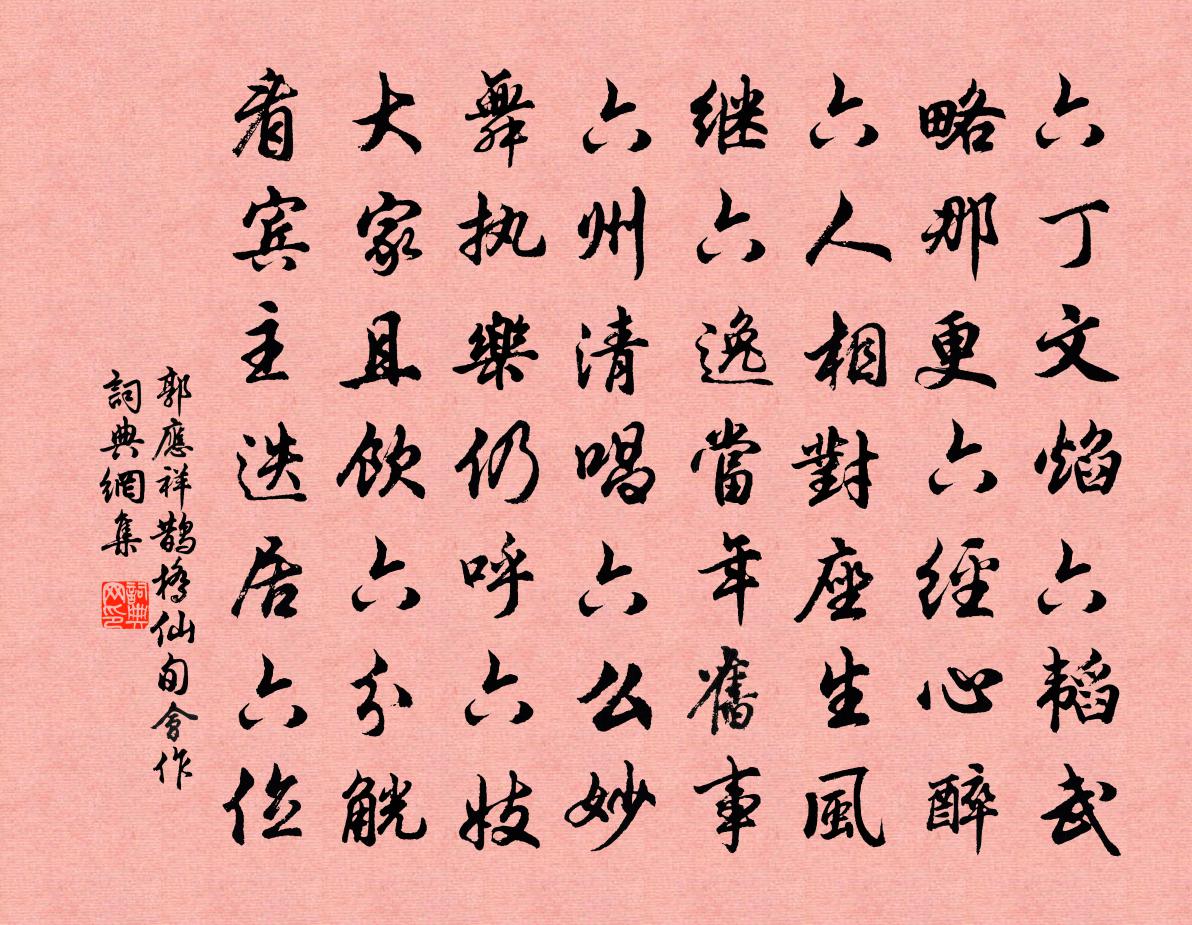 六丁文焰六韬武
略那更六經心醉
六人相對座生風
继六逸當年舊事
六州清唱六么妙
舞执樂仍呼六妓
大家且飲六分觥
看宾主迭居六位
郭應祥鵲橋仙旬會作
詞典網集
詞典网印